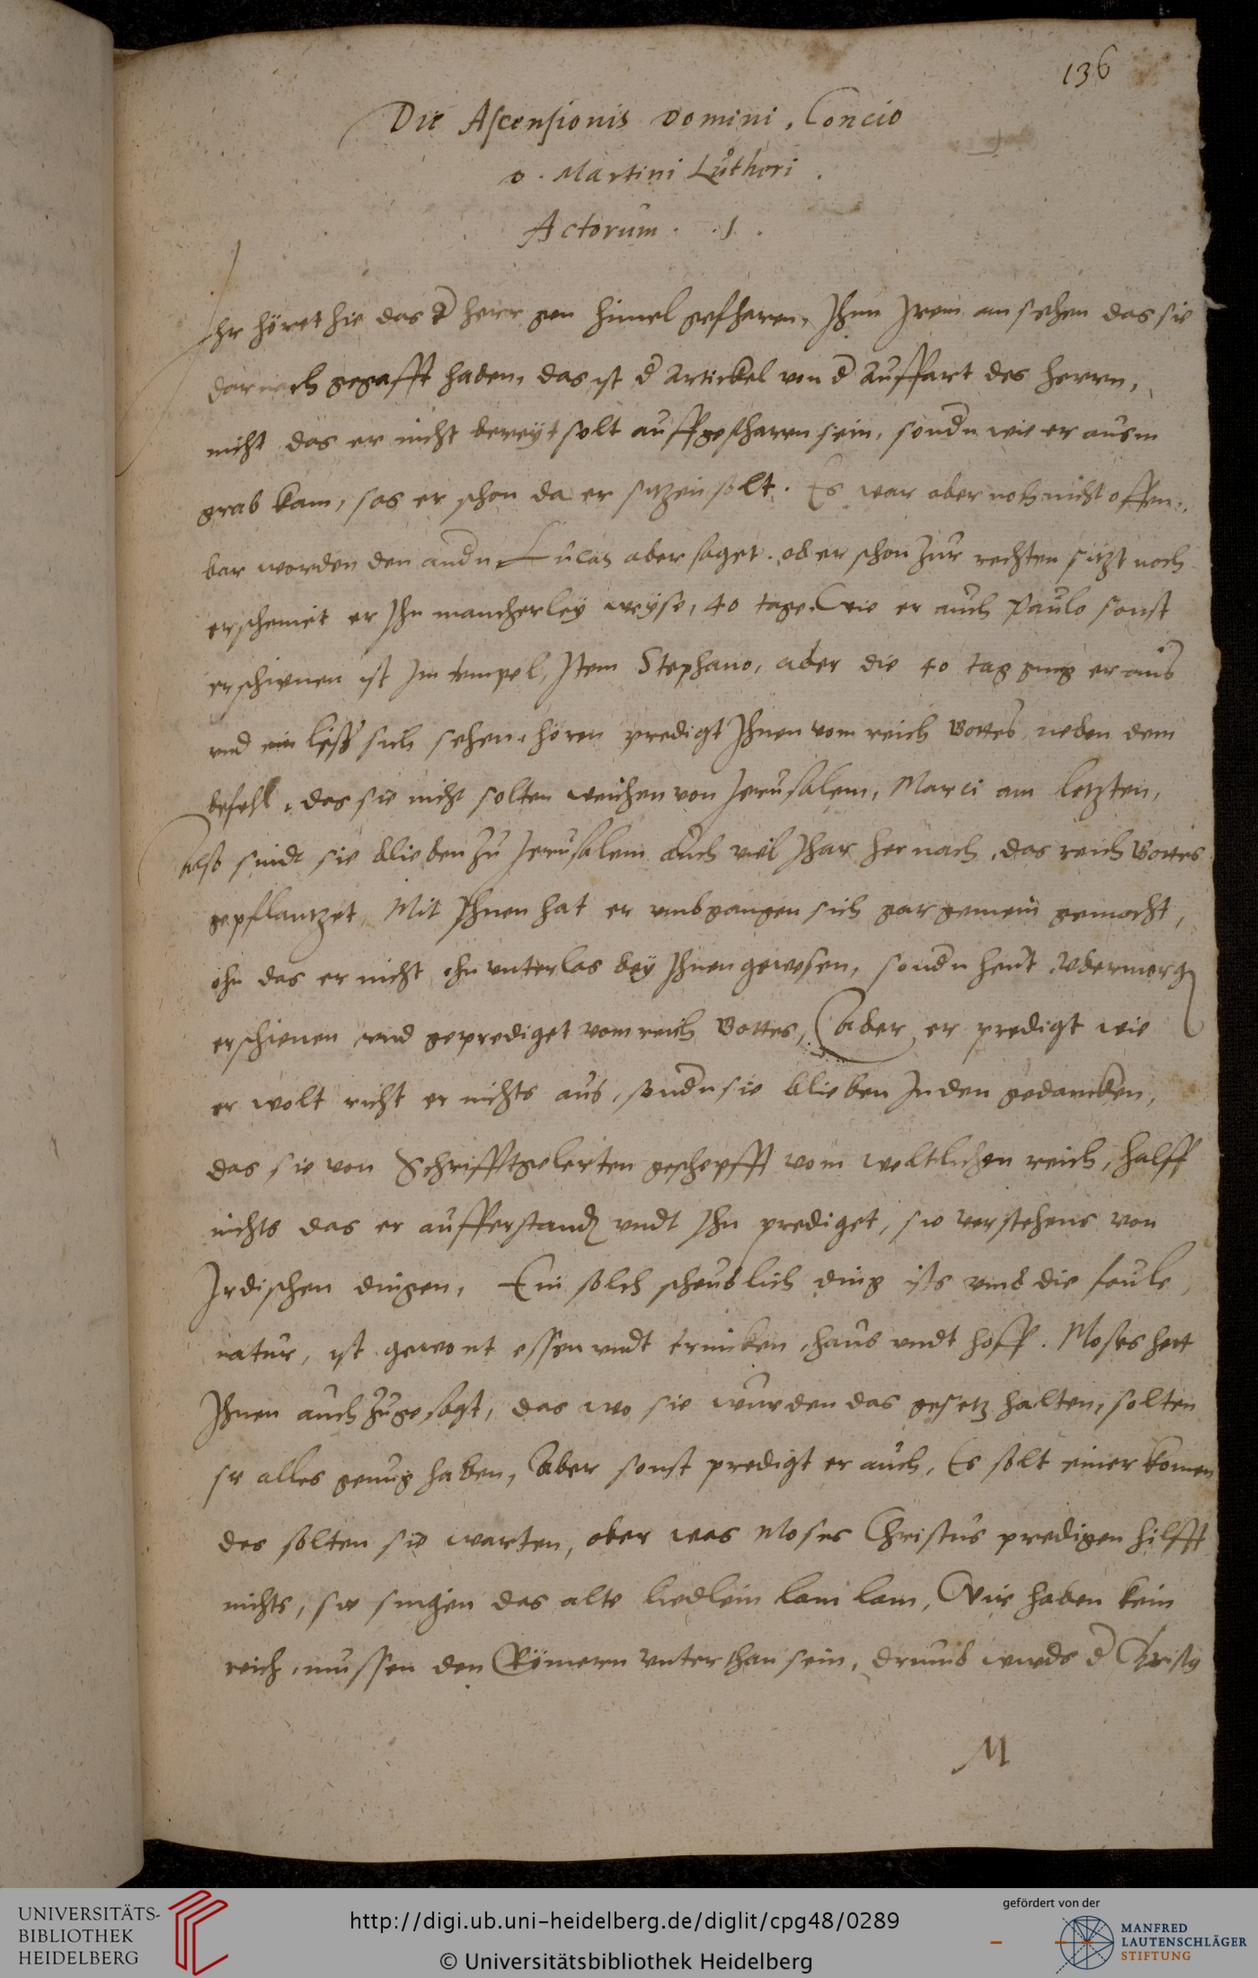 136
Die Ascensionis Domini. Concio
D. Martini Lůtheri.
Actorum. .1.
Ihr höret hie das d herr gen himel gefharen, Ihnn Irem an sehen das sie
darnach gegafft haben, das ist d Artickel von d Auffart des herrn,
nicht das er nicht bereyt solt auffgefharen sein, sondn wie er ausm
grab kam, sas er schon da er sitzen solt. Es war aber noch nicht offen-
bar worden den andn Lucas aber saget. ob er schon zur rechten sitzt noch
erscheinet er Ihn mancherley weyse, 40 tage. Wie er auch Paulo sonst
erschienen ist Im tempel, Item Stephano, aber die 40 tag ging er aus
vnd ein liess sich sehen, hören predigt Ihnen vom reich Gottes neben dem
befehl, das sie nicht solten weichen von Jerusalem, Marci am letzten,
Also sindt sie blieben zu Jerusalem auch viel Ihar hernach, das reich Gottes
gepflantzet, Mit Ihnen hat er vmbgangen sich gar gemein gemacht,
ohn das er nicht ohn vnterlas bey Ihnen gewesen, sondn heut vbermorg
erschienen vnd geprediget vom reich Gottes, Aber er predigt wie
er wolt richt er nichts aus, sondn sie blieben In den gedancken,
das sie von Schrifftgelerten geschepfft vom weltlichen reich, halff
nichts das er aufferstand vndt Ihn prediget, sie verstehens von
Irdischen dingen, Ein solch scheuslich ding ists vmb die faule
natur, ist gewont essen vndt trincken, haus vndt hoff. Moses hett
Ihnen auch zugesagt, das wo sie wurden das gesetz halten, solten
sie alles genug haben, Aber sonst predigt er auch, Es solt einer komen
des solten sie warten, aber was Moses Christus predigen hilfft
nichts, sie singen das alte liedlein lam lam, Wir haben kein
reich, mussen den Römern vnterthan sein, drumb wirds d Christus
M
UNIVERSITÄTS-
BIBLIOTHEK
HEIDELBERG
http://digi.ub.uni-heidelberg.de/diglit/cpg48/0289
© Universitätsbibliothek Heidelberg
gefördert von der
MANFRED
LAUTENSCHLÄGER
STIFTUNG